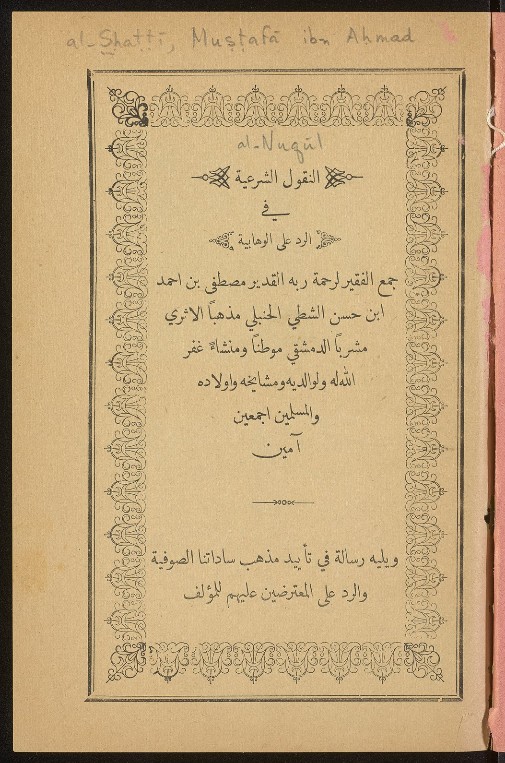 al-Shaṭṭī, Muṣṭafā ibn Aḥmad
al-Nuqūl
النقول الشرعية
في
الرد على الوهابية
جمع الفقير لرحمة ربه القدير مصطفى بن احمد
ابن حسن الشطي الحنبلي مذهباً الاثري
مشرباً الدمشقي موطناً ومنشاءً غفر
الله له ولوالديه ومشايخه واولاده
والمسلمين اجمعين
آمين
ويليه رسالة في تأييد مذهب ساداتنا الصوفية
والرد على المعترضين عليهم للمؤلف